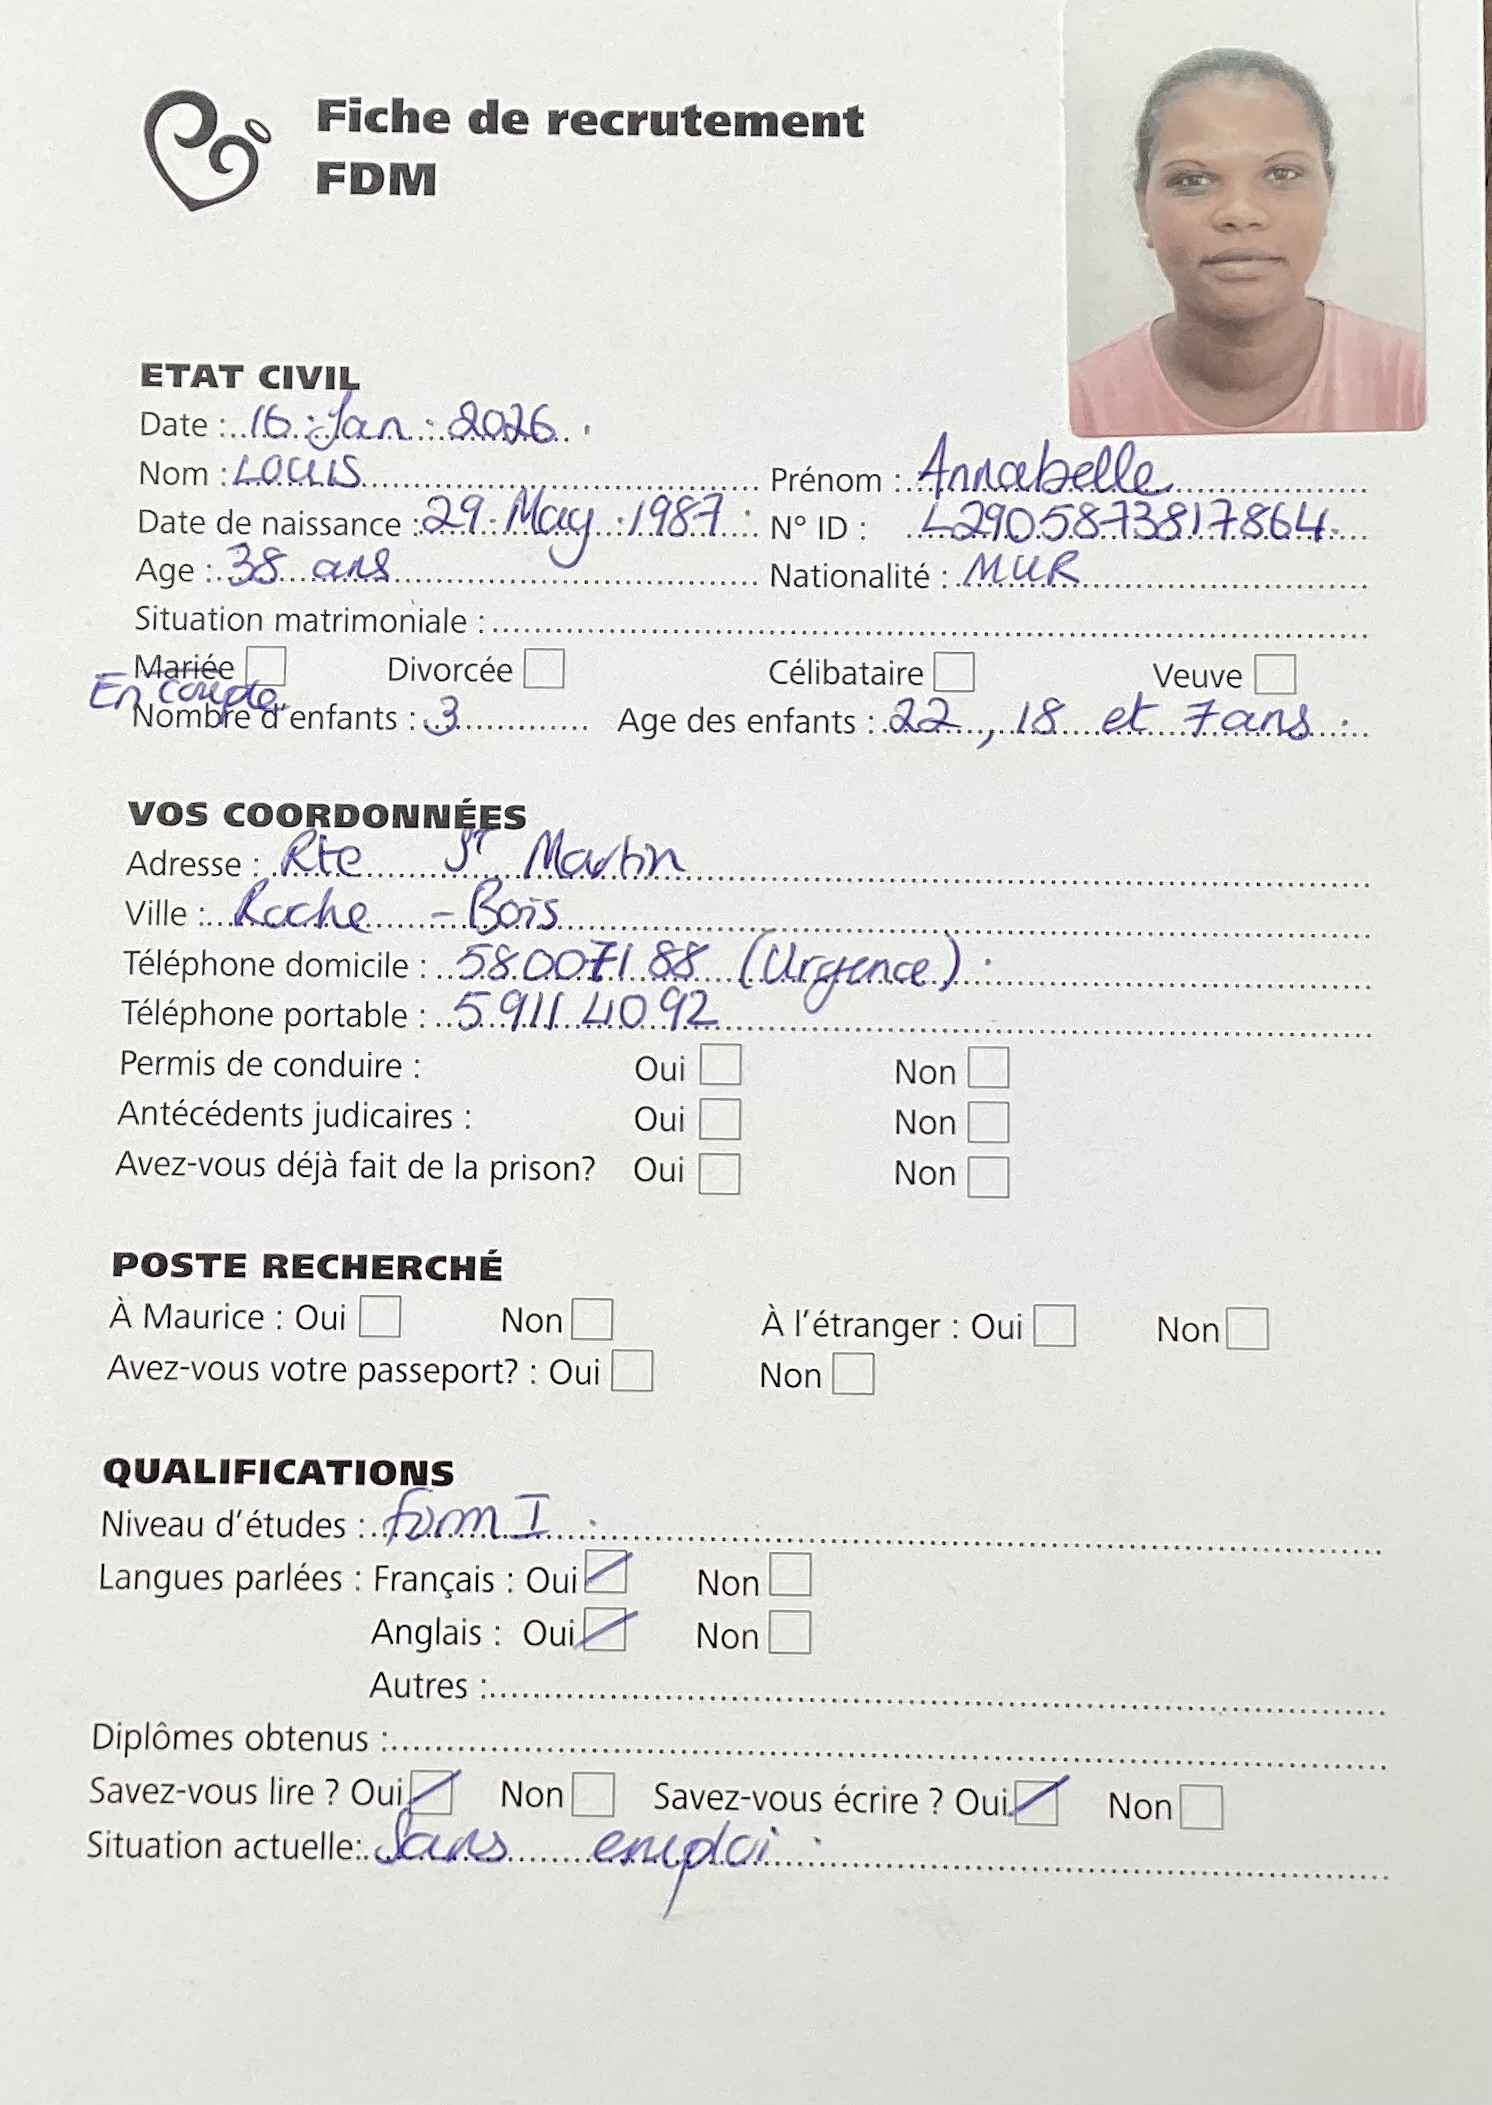 Fiche de recrutement
FDM
ETAT CIVIL
Date : 16 Jan 2026
Nom : LOUIS Prénom : Annabelle
Date de naissance : 29 May 1987 N° ID : L2905873817864
Age : 38 ans Nationalité : MUR
Situation matrimoniale :
Mariée Divorcée Célibataire Veuve
En couple
Nombre d'enfants : 3 Age des enfants : 22, 18 et 7 ans
VOS COORDONNÉES
Adresse : Rte St Martin
Ville : Roche - Bois
Téléphone domicile : 58007188 (Urgence)
Téléphone portable : 5911 4092
Permis de conduire : Oui Non
Antécédents judicaires : Oui Non
Avez-vous déjà fait de la prison? Oui Non
POSTE RECHERCHÉ
À Maurice : Oui Non À l'étranger : Oui Non
Avez-vous votre passeport? : Oui Non
QUALIFICATIONS
Niveau d'études : form I
Langues parlées : Français : Oui Non
Anglais : Oui Non
Autres :
Diplômes obtenus :
Savez-vous lire ? Oui Non Savez-vous écrire ? Oui Non
Situation actuelle: Sans emploi